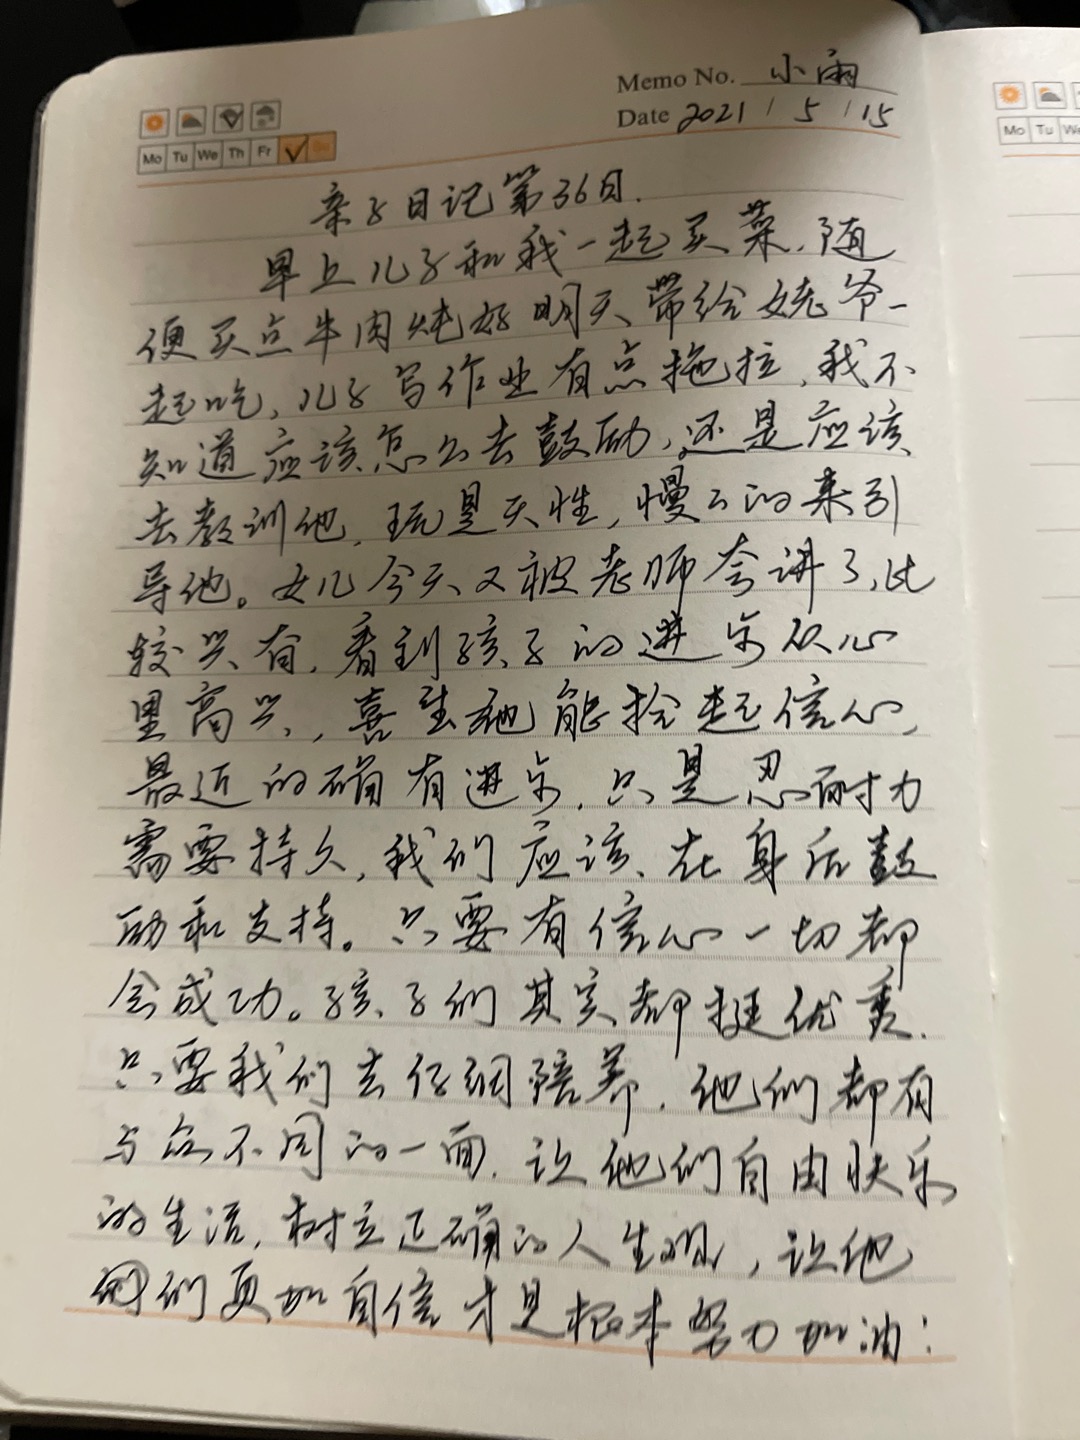 Memo No. 小雨
Date 2021 / 5 / 15
Mo Tu We Th Fr Su
Mo Tu We
亲子日记第36日.
早上儿子和我一起买菜.随
便买点牛肉炖好明天带给姥爷一
起吃,儿子写作业有点拖拉,我不
知道应该怎么去鼓励,还是应该
去教训他,玩是天性,慢々的来引
导他。女儿今天又被老师夸讲了,比
较兴有,看到孩子的进步从心
里高兴,喜望她能拾起信心,
最近的确有进步.只是忍耐力
需要持久,我们应该在身后鼓
励和支持。只要有信心一切都
会成功。孩子们其实都挺优秀.
只要我们去仔细培养.他们都有
与众不同的一面.让他们自由快乐
的生活,树立正确的人生观,让他
们更加自信才是根本努力加油: